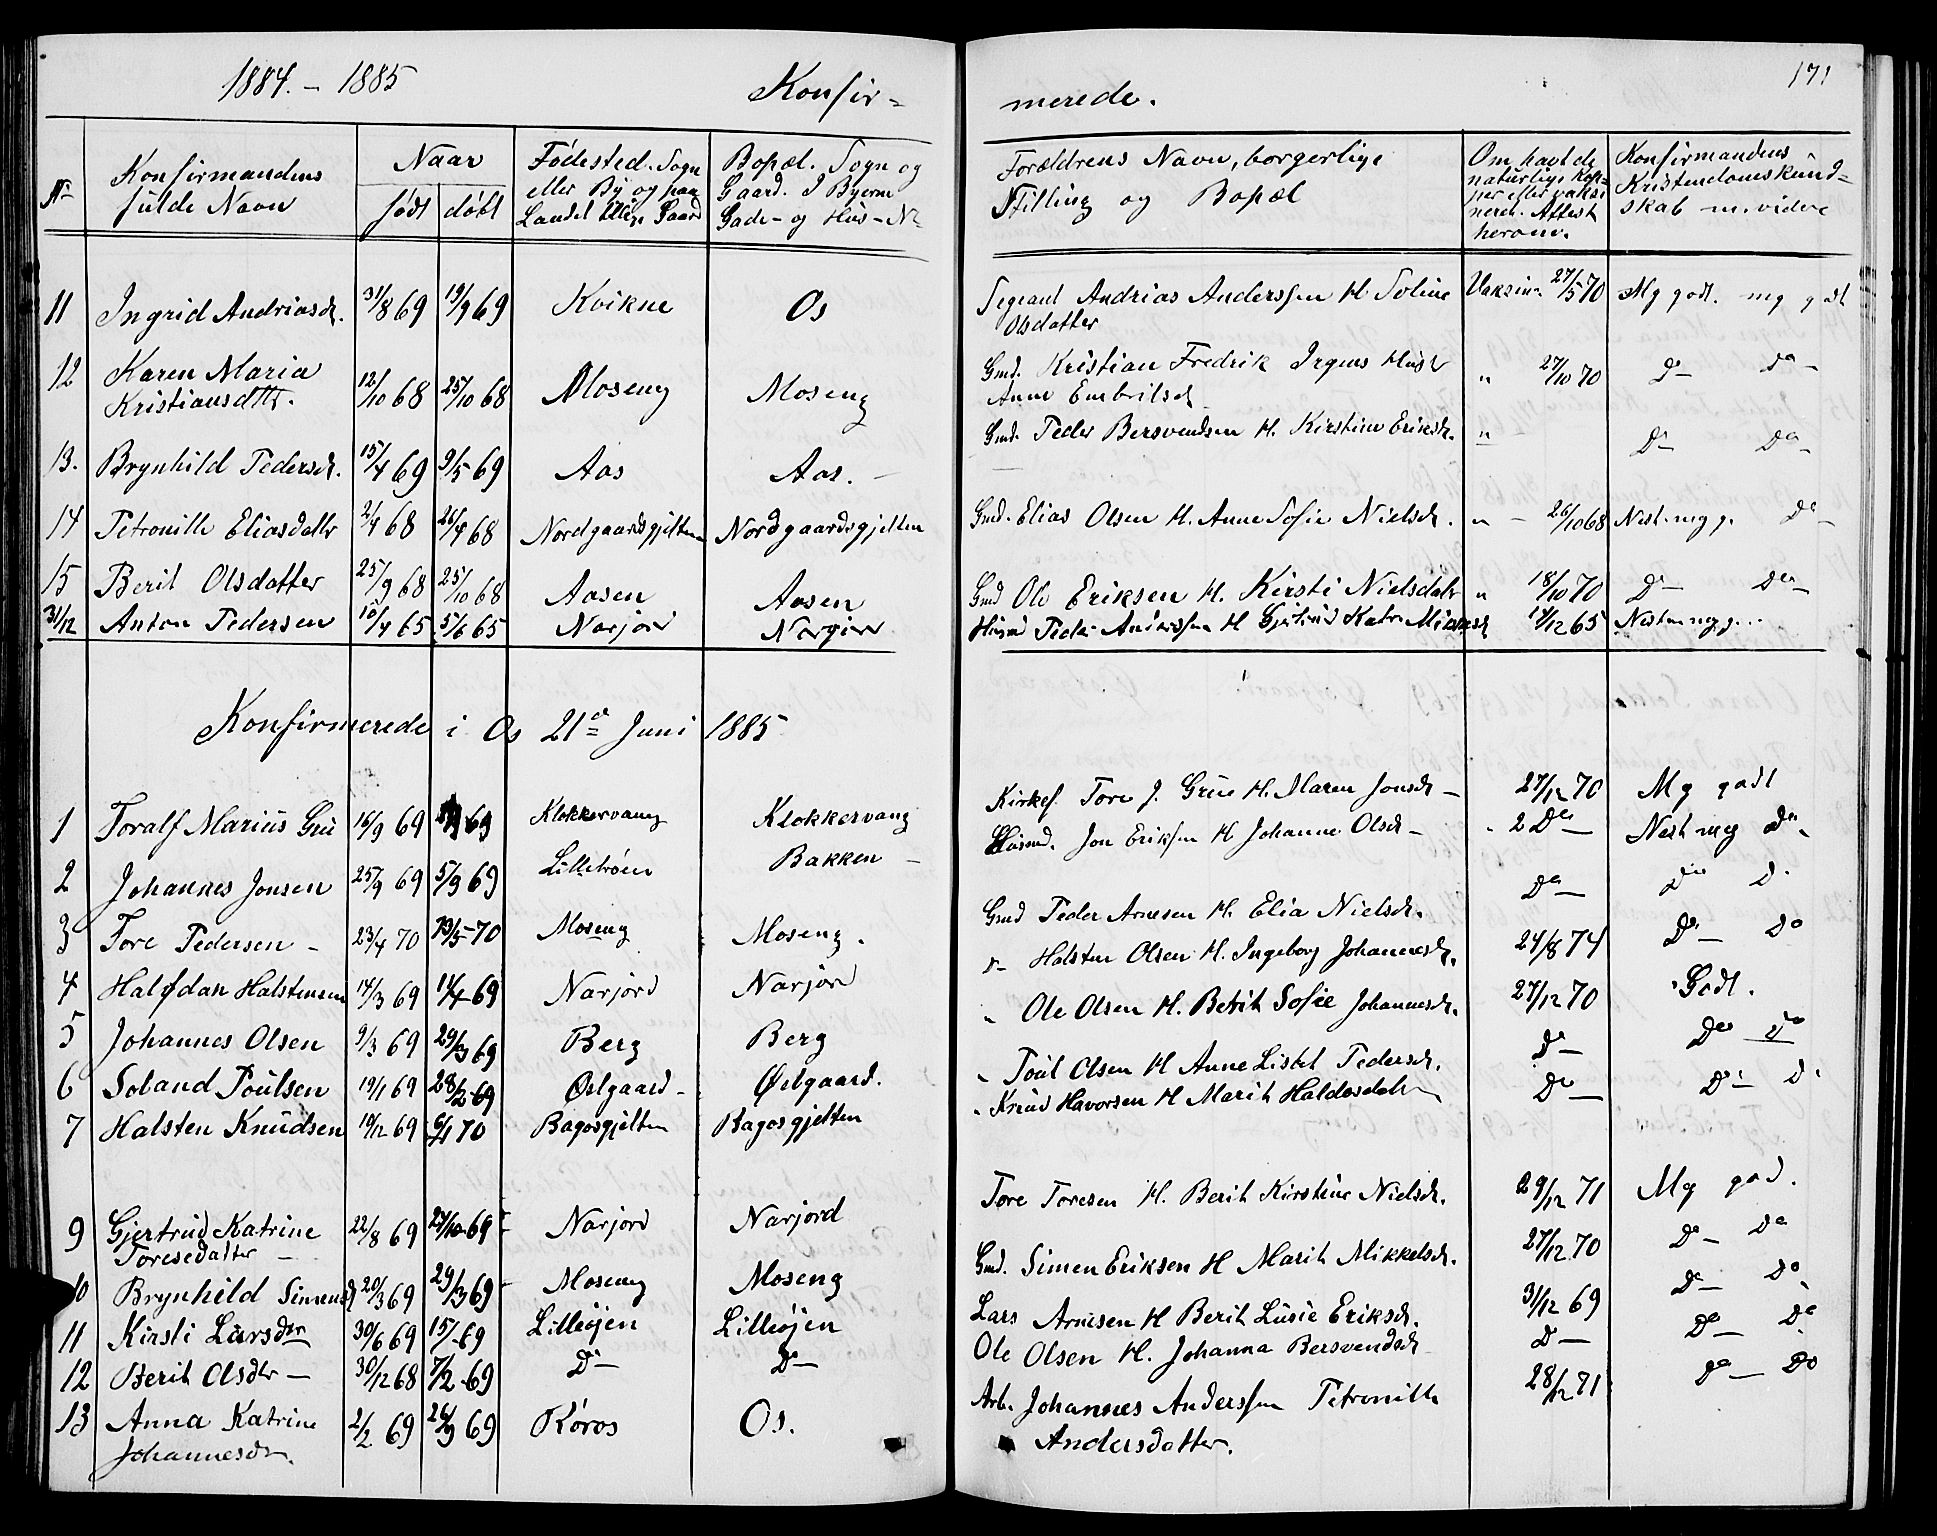 1884. - 1885 Konfir- merede. 171
No Konfirmandens fulde Navn Naar født døbt Fødested. Sogn eller By og paa Landet tillige Gaard Bopæl. Sogn og Gaard. I Byerne Gade- og Hus-No Forældrens Navn, borgerlige Stilling og Bopæl Om havt de naturlige Kopper eller vaksineret. Attest herom. Konfirmandens Kristendomskundskab m. videre
11 Ingrid Andriasd. 31/8 69 19/9 69 Kvikne Os Sergeant Andrias Anderssen H. Soline Olsdatter Vaksin. 27/5 70 Mg godt. mg godt
12 Karen Maria Kristiansdtr. 12/10 68 25/10 68 Moseng Moseng Gmd. Kristian Fredrik Irgens Hust Anne Embritsd " 27/10 70 Do Do
13. Brynhild Pedersd. 15/4 69 9/5 69 Aas Aas. Gmd. Peder Bersvendsen H. Kirstine Eriksd. " Do Do
14 Petronille Eliasdatter 2/4 68 26/4 68 Nordgaardsgjelten Nordgaardsgjelten Gmd. Elias Olsen H. Anne Sofie Nielsd. " - 26/10 68 Nest. meg g. Do
15 Berit Olsdatter 25/9 68 25/10 68 Aasen Aasen Gmd Ole Eriksen H. Kirsti Nielsdatr " 18/10 70 Do Do
31/12 Anton Pedersen 10/4 65 5/6 65 Narjord Narjord Husmd Peder Anderssen H Gjertrud Katr. 12/65 Nesten meg g.
Konfirmerede i Os 21de Juni 1885
1 Toralf Marius Grue 16/9 69 69 Klokkervang Klokkervang Kirkes. Tore J. Grue H. Maren Jonsd - 27/12 70 Mg godt
2 Johannes Jonsen 25/9 69 5/9 69 Lilletrøen Bakken - Husmd. Jon Eriksen H Johanne Olsd - Do Nest meg Do
3 Tore Pedersen - 23/4 70 /5 70 Moseng Moseng. Gmd Peder Arnesen H. Elia Nielsd. Do Do Do
4 Halfdan Halstensen 14/3 69 11/4 69 Narjord Narjord Do Halsten Olsen H. Ingeborg Johannesd. 24/8 74 Do Do
5 Johannes Olsen 9/3 69 29/3 69 Berg Berg " Ole Olsen H. Berit Sofie Johannesd. 27/12 70 Godt.
6 Soland Poulsen 19/1 69 28/2 69 Østgaard - Østgaard. " Poul Olsen H Anne Lisbet Pedersd. Do Do Do
7 Halsten Knudsen 10/12 69 6/1 70 Bagosgjelten Bagosgjelten " Knud Havorsen H Marit Haldosdatr Do Do Do
9 Gjertrud Katrine Toresedatter - 22/8 69 24/10 69 Narjord Narjord Tore Toresen H. Berit Kirstine Nielsd. 29/12 71 Mg god.
10 Brynhild Simensd 20/3 69 29/3 69 Moseng Moseng Gmd. Simen Eriksen H Marit Mikkelsd. 27/12 70 Do Do
11 Kirsti Larsdtr 30/6 69 15/ 69 Lilleøien Lilleøien Lars Arnesen H Berit Lusie Eriksd. 31/12 69 Do Do
12 Berit Olsdtr - 30/12 68 7/2 69 Do Do Ole Olsen H. Johanna Bersvendsd Do Do Do
13 Anna Katrine Johannesdtr. 2/2 69 26/3 69 Røros Os. Arb. Johannes Anderssen Petronille Andersdatter. 28/12 71 Do Do